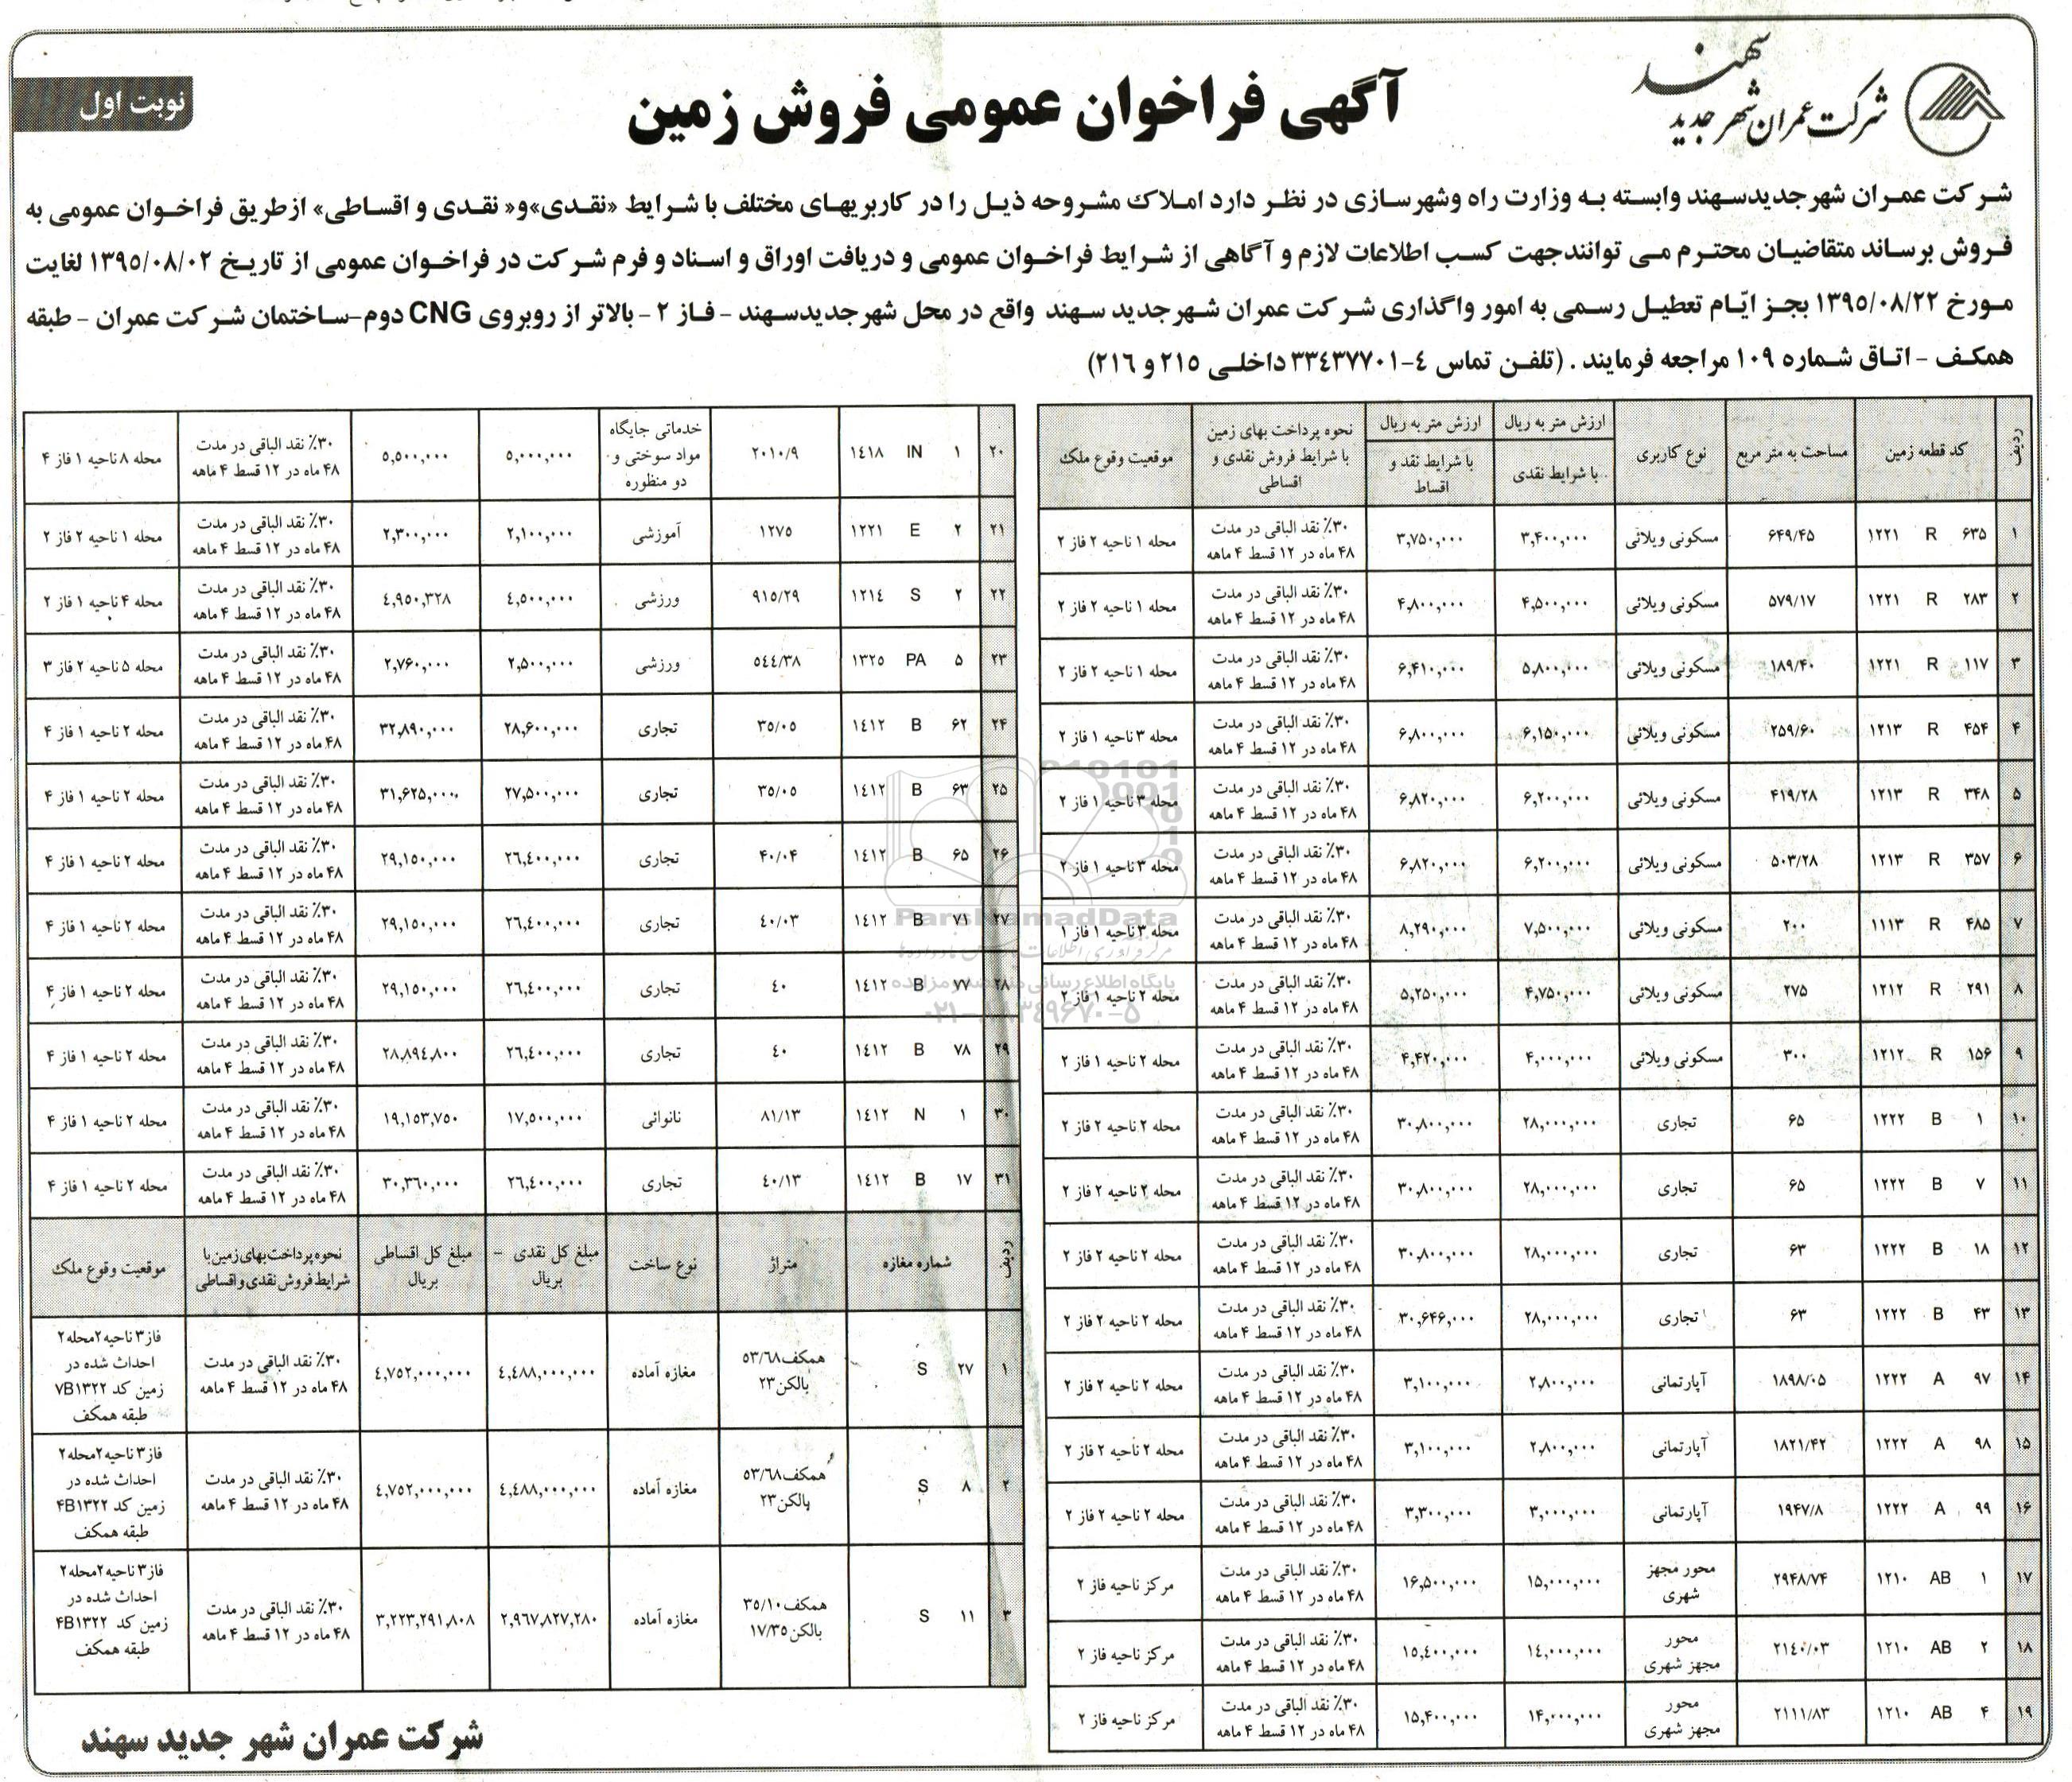 سهند
شرکت عمران شهر جدید
آگهی فراخوان عمومی فروش زمین
نوبت اول
شرکت عمران شهر جدید سهند وابسته به وزارت راه وشهرسازی در نظر دارد املاک مشروحه ذیل را در کاربریهای مختلف با شرایط «نقدی»و« نقدی و اقساطی» ازطریق فراخوان عمومی به
فروش برساند متقاضیان محترم می توانندجهت کسب اطلاعات لازم و آگاهی از شرایط فراخوان عمومی و دریافت اوراق و اسناد و فرم شرکت در فراخوان عمومی از تاریخ ۱۳۹۵/۰۸/۰۲ لغایت
مورخ ۱۳۹۵/۰۸/۲۲ بجز ایّام تعطیل رسمی به امور واگذاری شرکت عمران شهرجدید سهند واقع در محل شهرجدیدسهند - فاز ۲ - بالاتر از روبروی CNG دوم-ساختمان شرکت عمران - طبقه
همکف - اتاق شماره ۱۰۹ مراجعه فرمایند . (تلفن تماس ٤-۳۳٤۳۷۷۰۱ داخلی ۲۱۵ و ۲۱۶)
ردیف | کد قطعه زمین | مساحت به متر مربع | نوع کاربری | ارزش متر به ریال با شرایط نقدی | ارزش متر به ریال با شرایط نقد و اقساط | نحوه پرداخت بهای زمین با شرایط فروش نقدی و اقساطی | موقعیت وقوع ملک
۱ | ۶۳۵ R ۱۲۲۱ | ۶۴۹/۴۵ | مسکونی ویلائی | ۳,۴۰۰,۰۰۰ | ۳,۷۵۰,۰۰۰ | ۳۰٪ نقد الباقی در مدت ۴۸ ماه در ۱۲ قسط ۴ ماهه | محله ۱ ناحیه ۲ فاز ۲
۲ | ۲۸۳ R ۱۲۲۱ | ۵۷۹/۱۷ | مسکونی ویلائی | ۴,۵۰۰,۰۰۰ | ۴,۸۰۰,۰۰۰ | ۳۰٪ نقد الباقی در مدت ۴۸ ماه در ۱۲ قسط ۴ ماهه | محله ۱ ناحیه ۲ فاز ۲
۳ | ۱۱۷ R ۱۲۲۱ | ۱۸۹/۴۰ | مسکونی ویلائی | ۵,۸۰۰,۰۰۰ | ۶,۴۱۰,۰۰۰ | ۳۰٪ نقد الباقی در مدت ۴۸ ماه در ۱۲ قسط ۴ ماهه | محله ۱ ناحیه ۲ فاز ۲
۴ | ۴۵۴ R ۱۲۱۳ | ۲۵۹/۶۰ | مسکونی ویلائی | ۶,۱۵۰,۰۰۰ | ۶,۸۰۰,۰۰۰ | ۳۰٪ نقد الباقی در مدت ۴۸ ماه در ۱۲ قسط ۴ ماهه | محله ۳ ناحیه ۱ فاز ۲
۵ | ۳۴۸ R ۱۲۱۳ | ۴۱۹/۲۸ | مسکونی ویلائی | ۶,۲۰۰,۰۰۰ | ۶,۸۲۰,۰۰۰ | ۳۰٪ نقد الباقی در مدت ۴۸ ماه در ۱۲ قسط ۴ ماهه | محله ۳ ناحیه ۱ فاز ۲
۶ | ۳۵۷ R ۱۲۱۳ | ۵۰۳/۲۸ | مسکونی ویلائی | ۶,۲۰۰,۰۰۰ | ۶,۸۲۰,۰۰۰ | ۳۰٪ نقد الباقی در مدت ۴۸ ماه در ۱۲ قسط ۴ ماهه | محله ۳ ناحیه ۱ فاز ۲
۷ | ۴۸۵ R ۱۱۱۳ | ۲۰۰ | مسکونی ویلائی | ۷,۵۰۰,۰۰۰ | ۸,۲۹۰,۰۰۰ | ۳۰٪ نقد الباقی در مدت ۴۸ ماه در ۱۲ قسط ۴ ماهه | محله ۳ ناحیه ۱ فاز ۱
۸ | ۲۹۱ R ۱۲۱۲ | ۲۷۵ | مسکونی ویلائی | ۴,۷۵۰,۰۰۰ | ۵,۲۵۰,۰۰۰ | ۳۰٪ نقد الباقی در مدت ۴۸ ماه در ۱۲ قسط ۴ ماهه | محله ۲ ناحیه ۱ فاز ۲
۹ | ۱۵۶ R ۱۲۱۲ | ۳۰۰ | مسکونی ویلائی | ۴,۰۰۰,۰۰۰ | ۴,۴۲۰,۰۰۰ | ۳۰٪ نقد الباقی در مدت ۴۸ ماه در ۱۲ قسط ۴ ماهه | محله ۲ ناحیه ۱ فاز ۲
۱۰ | ۱ B ۱۲۲۲ | ۶۵ | تجاری | ۲۸,۰۰۰,۰۰۰ | ۳۰,۸۰۰,۰۰۰ | ۳۰٪ نقد الباقی در مدت ۴۸ ماه در ۱۲ قسط ۴ ماهه | محله ۲ ناحیه ۲ فاز ۲
۱۱ | ۷ B ۱۲۲۲ | ۶۵ | تجاری | ۲۸,۰۰۰,۰۰۰ | ۳۰,۸۰۰,۰۰۰ | ۳۰٪ نقد الباقی در مدت ۴۸ ماه در ۱۲ قسط ۴ ماهه | محله ۲ ناحیه ۲ فاز ۲
۱۲ | ۱۸ B ۱۲۲۲ | ۶۳ | تجاری | ۲۸,۰۰۰,۰۰۰ | ۳۰,۸۰۰,۰۰۰ | ۳۰٪ نقد الباقی در مدت ۴۸ ماه در ۱۲ قسط ۴ ماهه | محله ۲ ناحیه ۲ فاز ۲
۱۳ | ۴۳ B ۱۲۲۲ | ۶۳ | تجاری | ۲۸,۰۰۰,۰۰۰ | ۳۰,۶۴۶,۰۰۰ | ۳۰٪ نقد الباقی در مدت ۴۸ ماه در ۱۲ قسط ۴ ماهه | محله ۲ ناحیه ۲ فاز ۲
۱۴ | ۹۷ A ۱۲۲۲ | ۱۸۹۸/۰۵ | آپارتمانی | ۲,۸۰۰,۰۰۰ | ۳,۱۰۰,۰۰۰ | ۳۰٪ نقد الباقی در مدت ۴۸ ماه در ۱۲ قسط ۴ ماهه | محله ۲ ناحیه ۲ فاز ۲
۱۵ | ۹۸ A ۱۲۲۲ | ۱۸۲۱/۴۲ | آپارتمانی | ۲,۸۰۰,۰۰۰ | ۳,۱۰۰,۰۰۰ | ۳۰٪ نقد الباقی در مدت ۴۸ ماه در ۱۲ قسط ۴ ماهه | محله ۲ ناحیه ۲ فاز ۲
۱۶ | ۹۹ A ۱۲۲۲ | ۱۹۴۷/۸ | آپارتمانی | ۳,۰۰۰,۰۰۰ | ۳,۳۰۰,۰۰۰ | ۳۰٪ نقد الباقی در مدت ۴۸ ماه در ۱۲ قسط ۴ ماهه | محله ۲ ناحیه ۲ فاز ۲
۱۷ | ۱ AB ۱۲۱۰ | ۲۹۴۸/۷۴ | محور مجهز شهری | ۱۵,۰۰۰,۰۰۰ | ۱۶,۵۰۰,۰۰۰ | ۳۰٪ نقد الباقی در مدت ۴۸ ماه در ۱۲ قسط ۴ ماهه | مرکز ناحیه فاز ۲
۱۸ | ۲ AB ۱۲۱۰ | ۲۱٤۰/۰۳ | محور مجهز شهری | ۱٤,۰۰۰,۰۰۰ | ۱۵,٤۰۰,۰۰۰ | ۳۰٪ نقد الباقی در مدت ۴۸ ماه در ۱۲ قسط ۴ ماهه | مرکز ناحیه فاز ۲
۱۹ | ۴ AB ۱۲۱۰ | ۲۱۱۱/۸۳ | محور مجهز شهری | ۱۴,۰۰۰,۰۰۰ | ۱۵,۴۰۰,۰۰۰ | ۳۰٪ نقد الباقی در مدت ۴۸ ماه در ۱۲ قسط ۴ ماهه | مرکز ناحیه فاز ۲
۲۰ | ۱ IN ۱٤۱۸ | ۲۰۱۰/۹ | خدماتی جایگاه مواد سوختی و دو منظوره | ۵,۰۰۰,۰۰۰ | ۵,۵۰۰,۰۰۰ | ۳۰٪ نقد الباقی در مدت ۴۸ ماه در ۱۲ قسط ۴ ماهه | محله ۸ ناحیه ۱ فاز ۴
۲۱ | ۲ E ۱۲۲۱ | ۱۲۷۵ | آموزشی | ۲,۱۰۰,۰۰۰ | ۲,۳۰۰,۰۰۰ | ۳۰٪ نقد الباقی در مدت ۴۸ ماه در ۱۲ قسط ۴ ماهه | محله ۱ ناحیه ۲ فاز ۲
۲۲ | ۲ S ۱۲۱٤ | ۹۱۵/۲۹ | ورزشی | ٤,۵۰۰,۰۰۰ | ٤,۹۵۰,۳۲۸ | ۳۰٪ نقد الباقی در مدت ۴۸ ماه در ۱۲ قسط ۴ ماهه | محله ۴ ناحیه ۱ فاز ۲
۲۳ | ۵ PA ۱۳۲۵ | ۵٤٤/۳۸ | ورزشی | ۲,۵۰۰,۰۰۰ | ۲,۷۶۰,۰۰۰ | ۳۰٪ نقد الباقی در مدت ۴۸ ماه در ۱۲ قسط ۴ ماهه | محله ۵ ناحیه ۲ فاز ۳
۲۴ | ۶۲ B ۱٤۱۲ | ۳۵/۰۵ | تجاری | ۲۸,۶۰۰,۰۰۰ | ۳۲,۸۹۰,۰۰۰ | ۳۰٪ نقد الباقی در مدت ۴۸ ماه در ۱۲ قسط ۴ ماهه | محله ۲ ناحیه ۱ فاز ۴
۲۵ | ۶۳ B ۱٤۱۲ | ۳۵/۰۵ | تجاری | ۲۷,۵۰۰,۰۰۰ | ۳۱,۶۲۵,۰۰۰ | ۳۰٪ نقد الباقی در مدت ۴۸ ماه در ۱۲ قسط ۴ ماهه | محله ۲ ناحیه ۱ فاز ۴
۲۶ | ۶۵ B ۱٤۱۲ | ۴۰/۰۴ | تجاری | ۲۶,٤۰۰,۰۰۰ | ۲۹,۱۵۰,۰۰۰ | ۳۰٪ نقد الباقی در مدت ۴۸ ماه در ۱۲ قسط ۴ ماهه | محله ۲ ناحیه ۱ فاز ۴
۲۷ | ۷۱ B ۱٤۱۲ | ٤۰/۰۳ | تجاری | ۲۶,٤۰۰,۰۰۰ | ۲۹,۱۵۰,۰۰۰ | ۳۰٪ نقد الباقی در مدت ۴۸ ماه در ۱۲ قسط ۴ ماهه | محله ۲ ناحیه ۱ فاز ۴
۲۸ | ۷۷ B ۱٤۱۲ | ٤۰ | تجاری | ۲۶,٤۰۰,۰۰۰ | ۲۹,۱۵۰,۰۰۰ | ۳۰٪ نقد الباقی در مدت ۴۸ ماه در ۱۲ قسط ۴ ماهه | محله ۲ ناحیه ۱ فاز ۴
۲۹ | ۷۸ B ۱٤۱۲ | ٤۰ | تجاری | ۲۶,٤۰۰,۰۰۰ | ۲۸,۸۹٤,۸۰۰ | ۳۰٪ نقد الباقی در مدت ۴۸ ماه در ۱۲ قسط ۴ ماهه | محله ۲ ناحیه ۱ فاز ۴
۳۰ | ۱ N ۱٤۱۲ | ۸۱/۱۳ | نانوائی | ۱۷,۵۰۰,۰۰۰ | ۱۹,۱۵۳,۷۵۰ | ۳۰٪ نقد الباقی در مدت ۴۸ ماه در ۱۲ قسط ۴ ماهه | محله ۲ ناحیه ۱ فاز ۴
۳۱ | ۱۷ B ۱٤۱۲ | ٤۰/۱۳ | تجاری | ۲۶,٤۰۰,۰۰۰ | ۳۰,۳۶۰,۰۰۰ | ۳۰٪ نقد الباقی در مدت ۴۸ ماه در ۱۲ قسط ۴ ماهه | محله ۲ ناحیه ۱ فاز ۴
ردیف | شماره مغازه | متراژ | نوع ساخت | مبلغ کل نقدی - بریال | مبلغ کل اقساطی بریال | نحوه پرداخت بهای زمین با شرایط فروش نقدی و اقساطی | موقعیت وقوع ملک
۱ | ۲۷ S | همکف۵۳/۶۸ بالکن۲۳ | مغازه آماده | ٤,٤۸۸,۰۰۰,۰۰۰ | ٤,۷۵۲,۰۰۰,۰۰۰ | ۳۰٪ نقد الباقی در مدت ۴۸ ماه در ۱۲ قسط ۴ ماهه | فاز۳ ناحیه۲محله۲ احداث شده در زمین کد ۷B۱۳۲۲ طبقه همکف
۲ | ۸ S | همکف۵۳/۶۸ بالکن۲۳ | مغازه آماده | ٤,٤۸۸,۰۰۰,۰۰۰ | ٤,۷۵۲,۰۰۰,۰۰۰ | ۳۰٪ نقد الباقی در مدت ۴۸ ماه در ۱۲ قسط ۴ ماهه | فاز۳ ناحیه۲محله۲ احداث شده در زمین کد ۴B۱۳۲۲ طبقه همکف
۳ | ۱۱ S | همکف۳۵/۱۰ بالکن۱۷/۳۵ | مغازه آماده | ۲,۹۶۷,۸۲۷,۲۸۰ | ۳,۲۲۳,۲۹۱,۸۰۸ | ۳۰٪ نقد الباقی در مدت ۴۸ ماه در ۱۲ قسط ۴ ماهه | فاز۳ ناحیه۲محله۲ احداث شده در زمین کد ۴B۱۳۲۲ طبقه همکف
شرکت عمران شهر جدید سهند
ParsNamadData